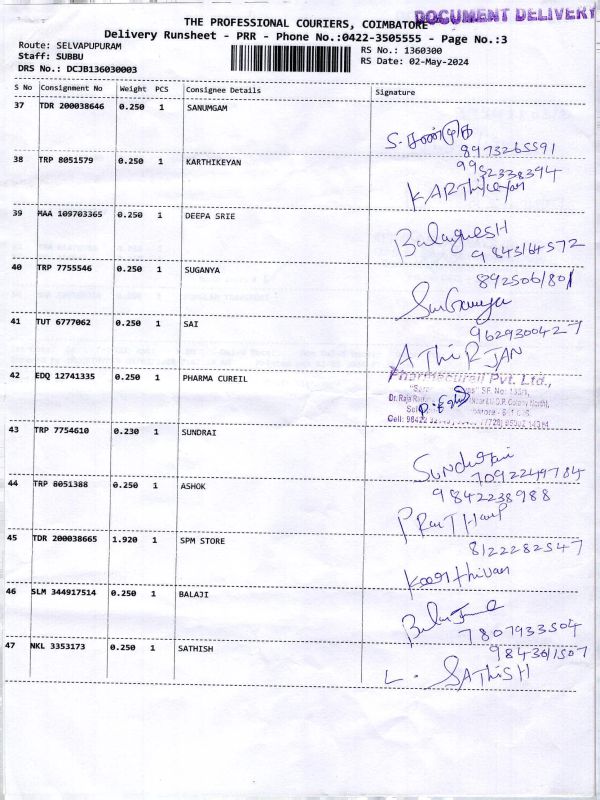 DOCUMENT DELIVERY
THE PROFESSIONAL COURIERS, COIMBATORE
Delivery Runsheet - PRR - Phone No.:0422-3505555 - Page No.:3
Route: SELVAPUPURAM
RS No.: 1360300
Staff: SUBBU
RS Date: 02-May-2024
DRS No.: DCJB136030003
S No Consignment No Weight PCS Consignee Details Signature
37 TDR 200038646 0.250 1 SANUMGAM
8973265591
38 TRP 8051579 0.250 1 KARTHIKEYAN
9952338394
KARThikeyan
39 MAA 109703365 0.250 1 DEEPA SRIE
BalagnesH
9843164572
40 TRP 7755546 0.250 1 SUGANYA
892506/801
41 TUT 6777062 0.250 1 SAI
9629300427
AThiRJAN
42 EDQ 12741335 0.250 1 PHARMA CUREIL
Pharmacureil Pvt. Ltd.,
43 TRP 7754610 0.230 1 SUNDRAI
7092249784
44 TRP 8051388 0.250 1 ASHOK
9842238988
45 TDR 200038665 1.920 1 SPM STORE
8122282547
46 SLM 344917514 0.250 1 BALAJI
7807933504
47 NKL 3353173 0.250 1 SATHISH
9843611507
L. SAThiSH